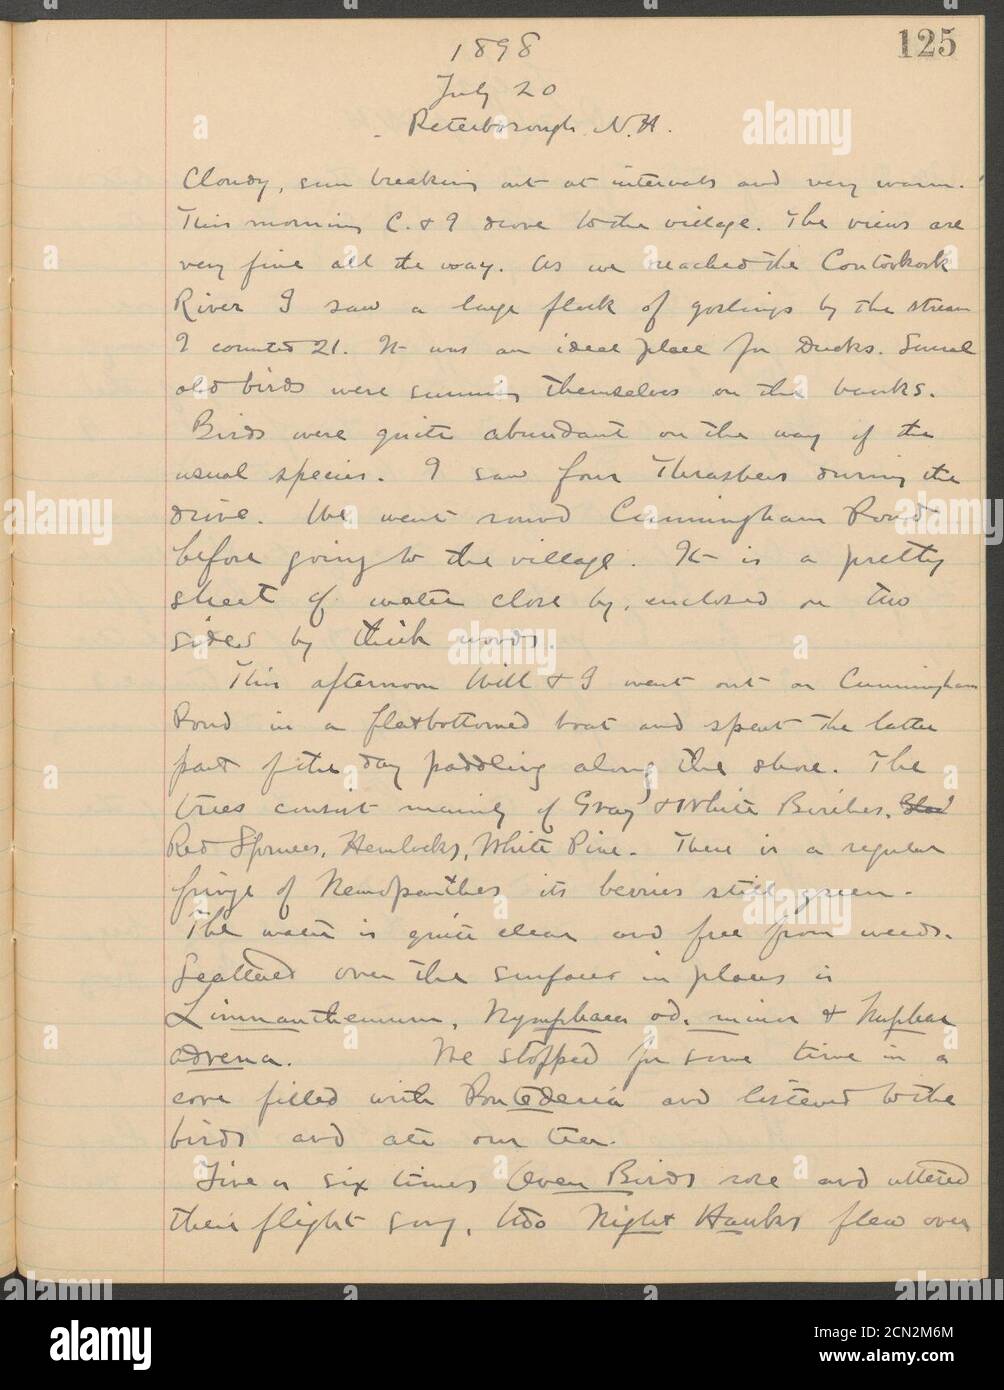 125
1898
July 20
Peterborough N.H.
Cloudy, sun breaking out at intervals and very warm.
This morning C. & I drove to the village. The views are
very fine all the way. As we reached the Contookook
River I saw a large flock of goslings by the stream
I counted 21. It was an ideal place for Ducks. Several
old birds were sunning themselves on the banks.
Birds were quite abundant on the way of the
usual species. I saw four Thrashers during the
drive. We went round Cunningham Pond
before going to the village. It is a pretty
sheet of water close by, enclosed on two
sides by thick woods.
This afternoon Will & I went out on Cunningham
Pond in a flat bottomed boat and spent the latter
part of the day paddling along the shore. The
trees consist mainly of Gray & White Birches,
Red Spruces, Hemlocks, White Pine. There is a regular
fringe of Nemopanthes its berries still green.
The water is quite clear and free from weeds.
Scattered over the surface in places is
Limnanthemum, Nymphaea od. minor & Nuphar
advena. We stopped for some time in a
cove filled with Pontederia and listened to the
birds and ate our tea.
Five or six times Oven Birds rose and uttered
their flight song, two Night Hawks flew over
alamy
a
Image ID: 2CN2M6M
www.alamy.com